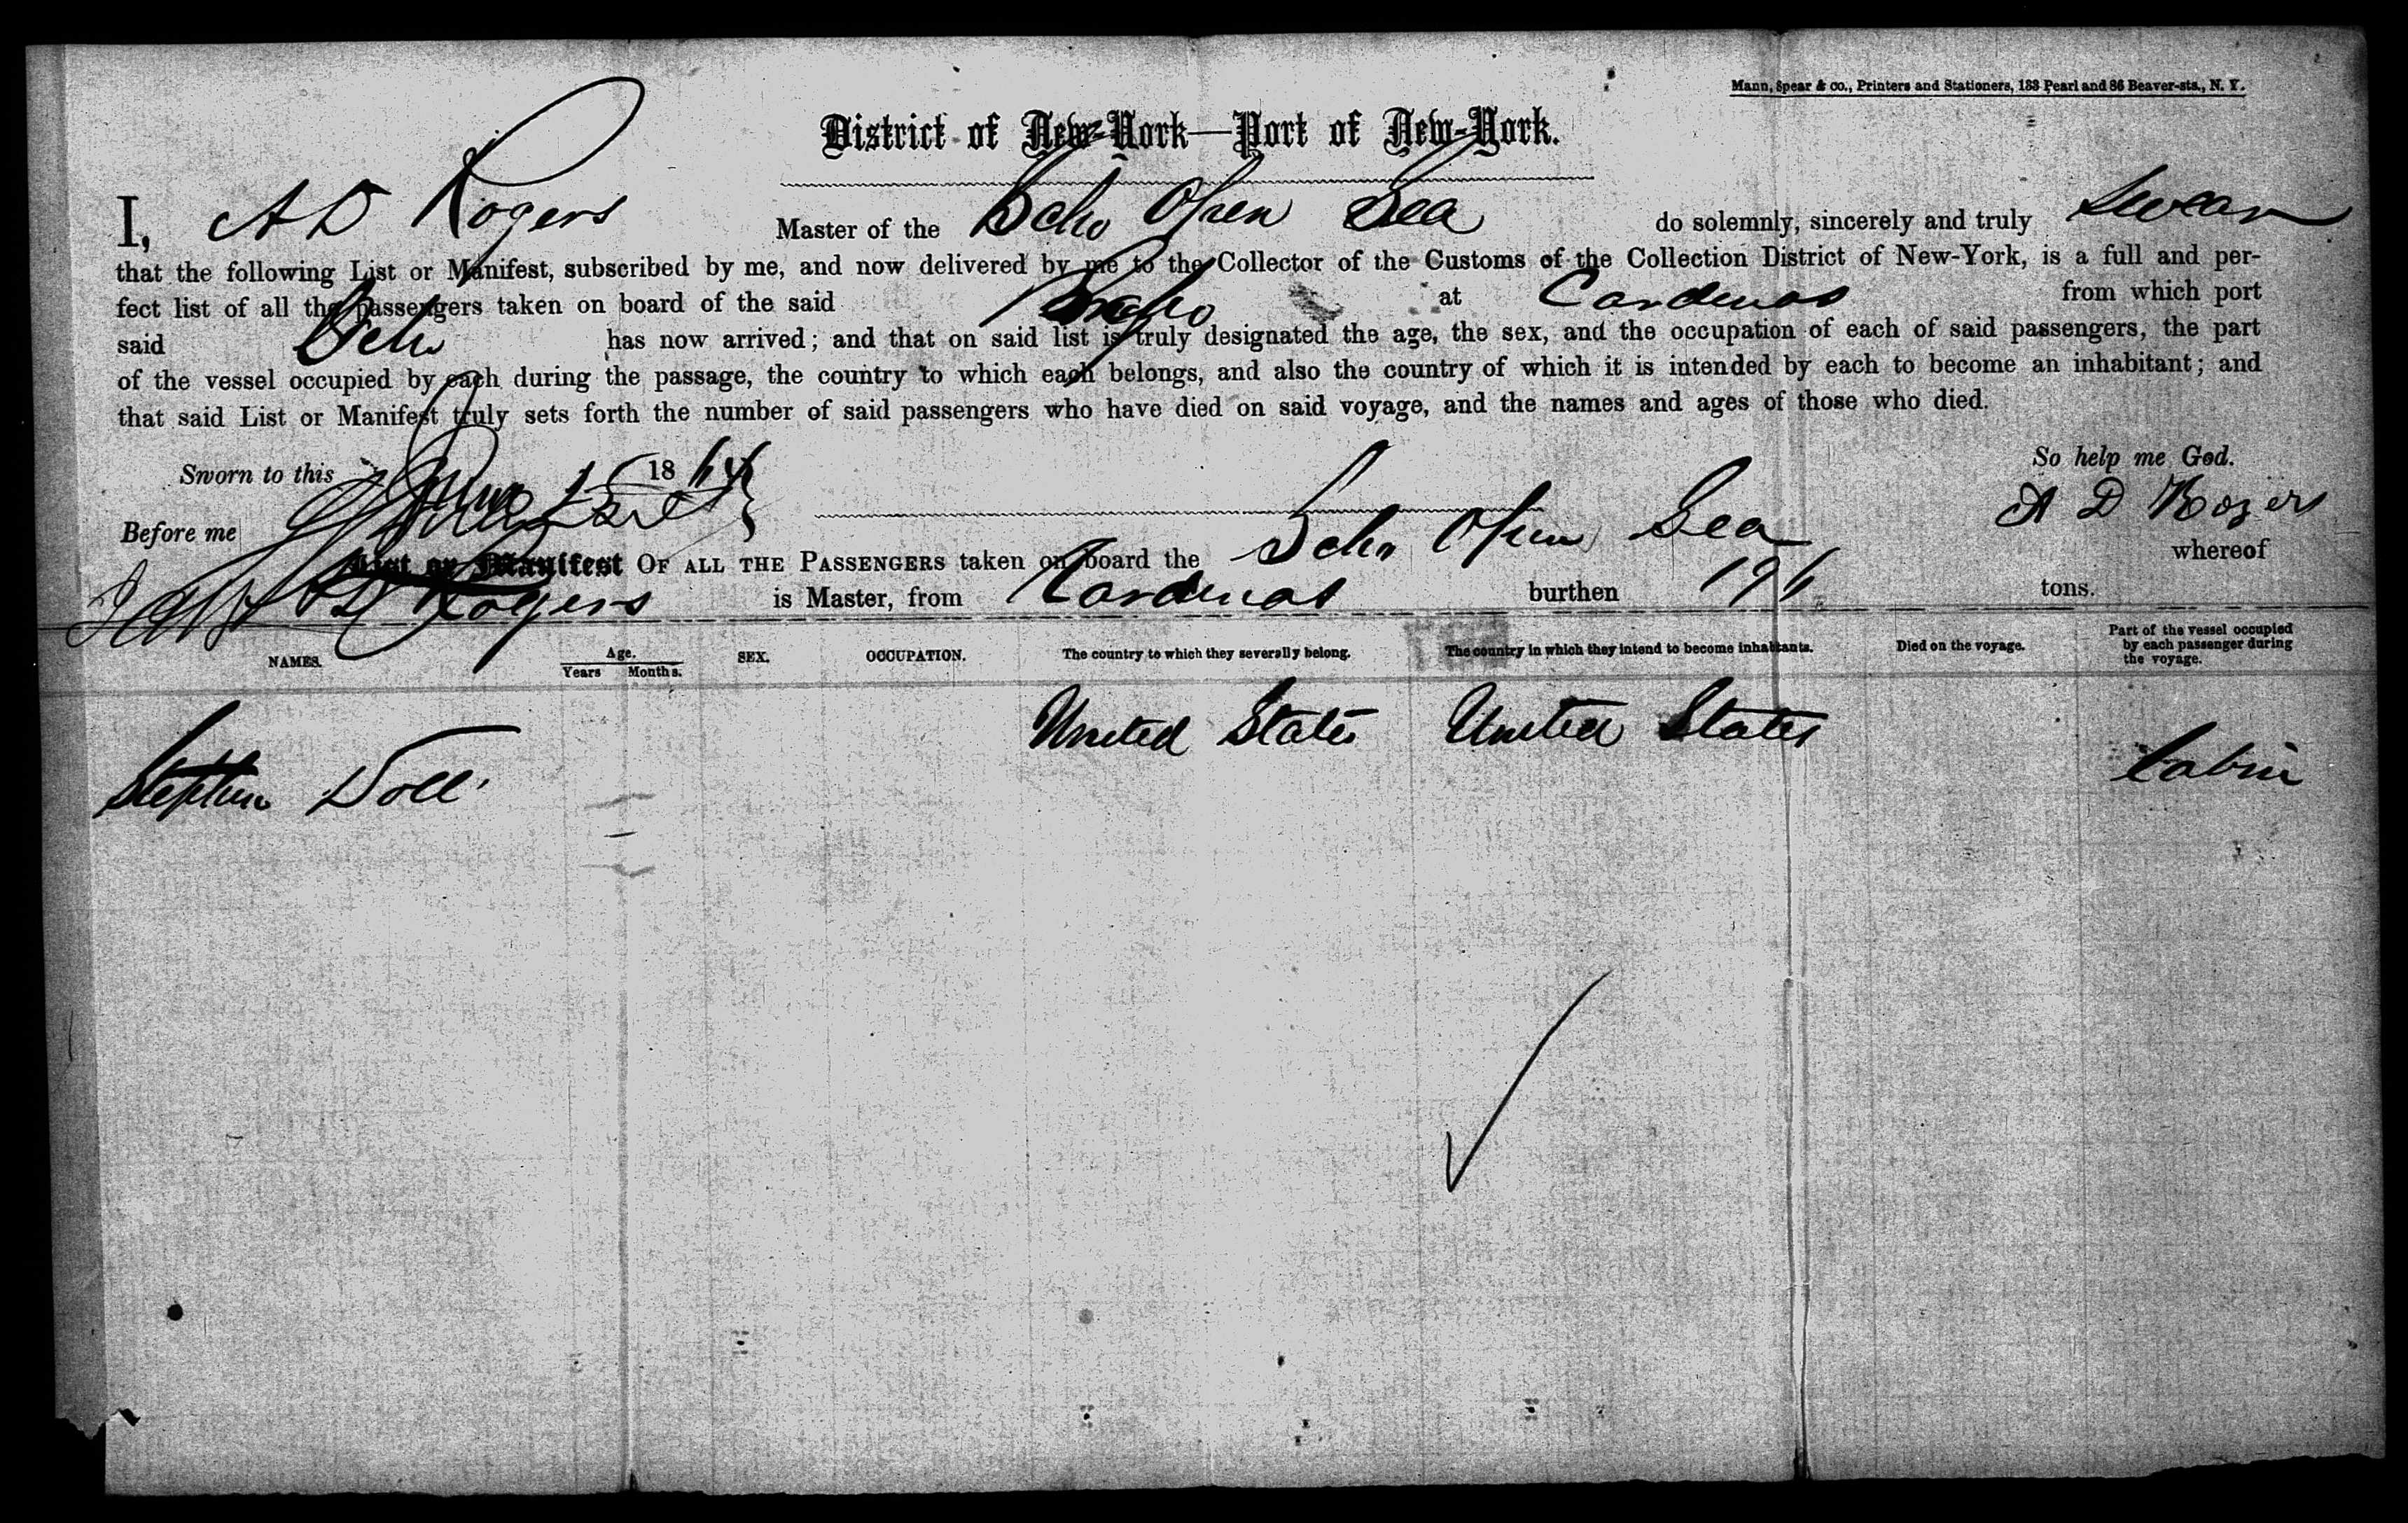 Mann, Spear & co., Printers and Stationers, 133 Pearl and 86 Beaver-sts., N. Y.
District of New-York—Port of New-York.
I, A D Rogers Master of the Schr Open Sea do solemnly, sincerely and truly Swear
that the following List or Manifest, subscribed by me, and now delivered by me to the Collector of the Customs of the Collection District of New-York, is a full and per-
fect list of all the passengers taken on board of the said at Cardenas from which port
said Schr has now arrived; and that on said list is truly designated the age, the sex, and the occupation of each of said passengers, the part
of the vessel occupied by each during the passage, the country to which each belongs, and also the country of which it is intended by each to become an inhabitant; and
that said List or Manifest truly sets forth the number of said passengers who have died on said voyage, and the names and ages of those who died.
Sworn to this June 1864 So help me God.
Before me A D Rogers
List or Manifest OF ALL THE PASSENGERS taken on board the Schr Open Sea whereof
Rogers is Master, from Cardenas burthen 196 tons.
NAMES. Age. Years Months. SEX. OCCUPATION. The country to which they severally belong. The country in which they intend to become inhabitants. Died on the voyage. Part of the vessel occupied by each passenger during the voyage.
Stephen United States United States Cabin